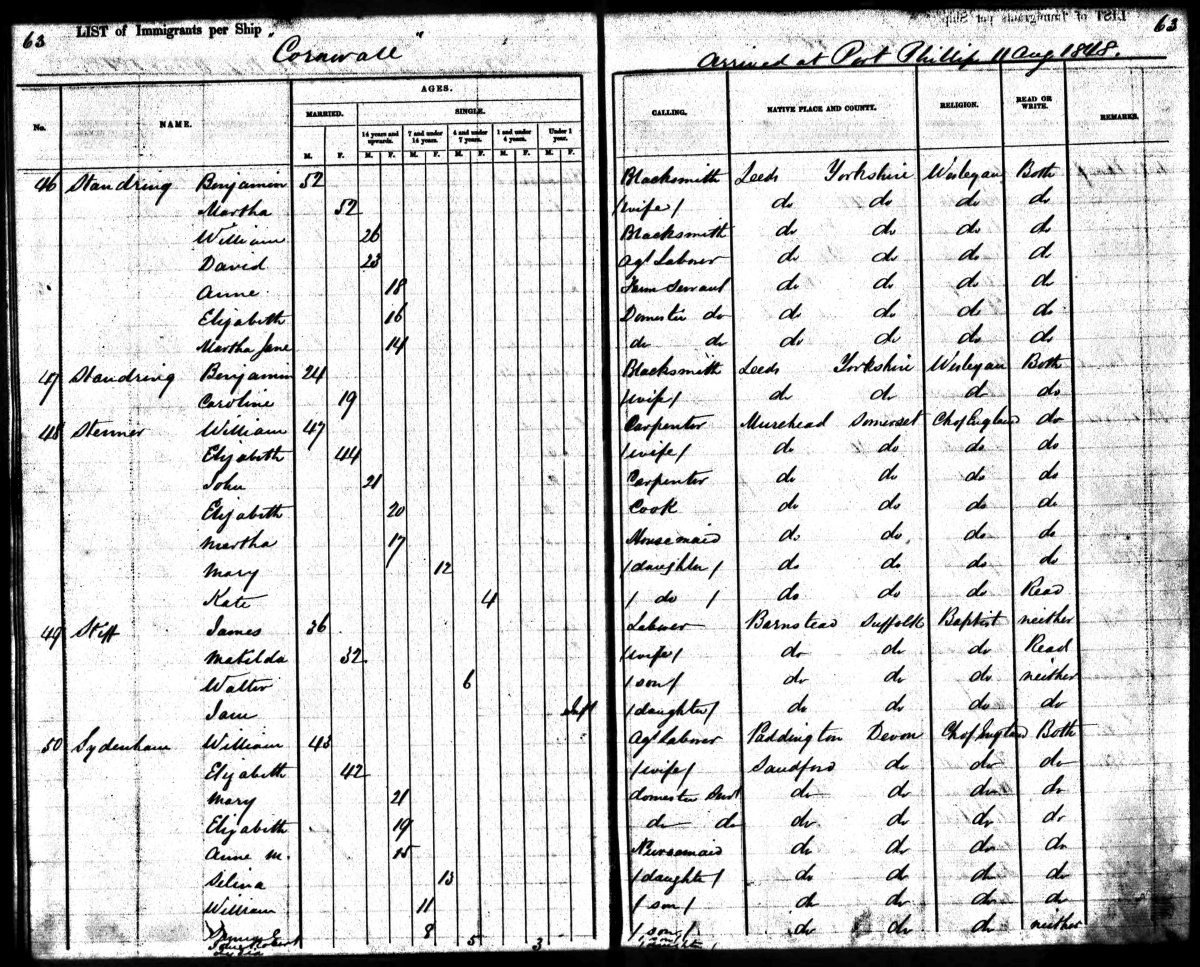 63 LIST of Immigrants per Ship "Cornwall" Arrived at Port Phillip 11 Aug 1848. 63
AGES.
MARRIED. SINGLE.
No. NAME. 14 years and upwards. 7 and under 14 years. 4 and under 7 years. 1 and under 4 years. Under 1 year. CALLING. NATIVE PLACE AND COUNTY. RELIGION. READ OR WRITE. REMARKS.
M. F. M. F. M. F. M. F. M. F. M. F.
46 Standring Benjamin 52 Blacksmith Leeds Yorkshire Wesleyan Both
Martha 52 /wife/ do do do do
William 26 Blacksmith do do do do
David 23 Agl Labour do do do do
Anne 18 Farm Servant do do do do
Elizabeth 16 Domestic do do do do do
Martha Jane 14 do do do do do do
47 Standring Benjamin 24 Blacksmith Leeds Yorkshire Wesleyan Both
Caroline 19 /wife/ do do do do
48 Stenner William 47 Carpenter Murehead Somerset Ch of England do
Elizabeth 44 /wife/ do do do do
John 21 Carpenter do do do do
Elizabeth 20 Cook do do do do
Martha 17 Housemaid do do do do
Mary 12 /daughter/ do do do do
Kate 4 / do / do do do Read
49 Stiff James 36 Labour Barnstead Suffolk Baptist neither
Matilda 32 /wife/ do do do Read
Walter 6 /son/ do do do neither
Jane /daughter/ do do do do
50 Sydenham William 43 Agl Labour Paddington Devon Ch of England Both
Elizabeth 42 /wife/ Sandford do do do
Mary 21 domestic Servt do do do do
Elizabeth 19 do do do do do do
Anne M. 15 Nursemaid do do do do
Selina 13 /daughter/ do do do do
William 11 /son/ do do do do
8 /son/ do do do neither
5 3